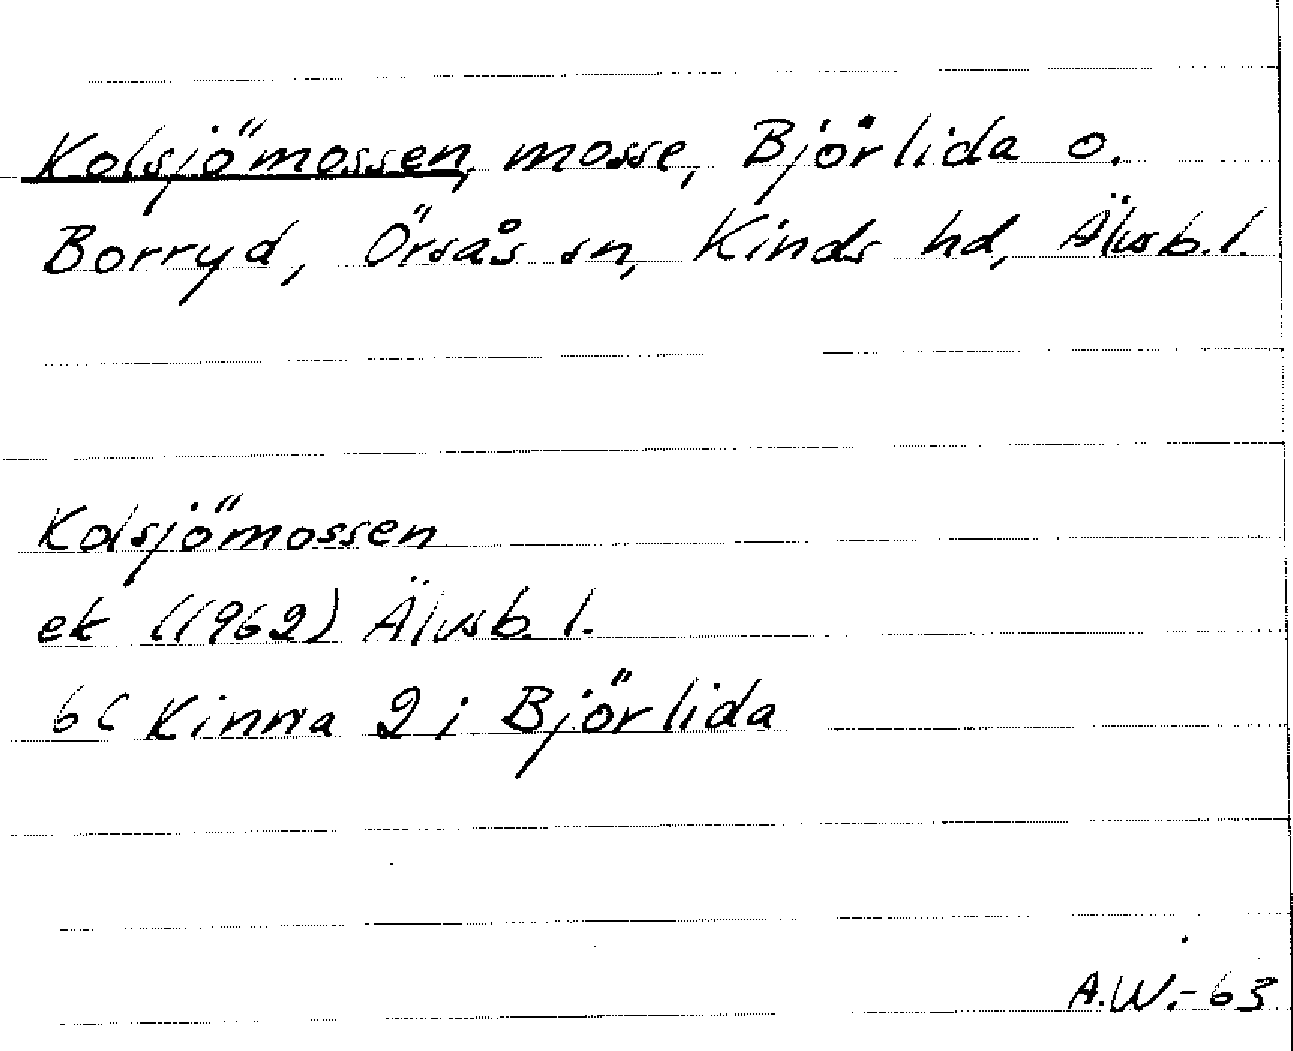 Kolsjömossen, mosse, Björlida o.
Borryd, Örsås sn, Kinds hd, Älvsb.l.
Kolsjömossen
ek (1962) Älvsb.l.
6C Kinna 2 i Björlida
A.W.-63